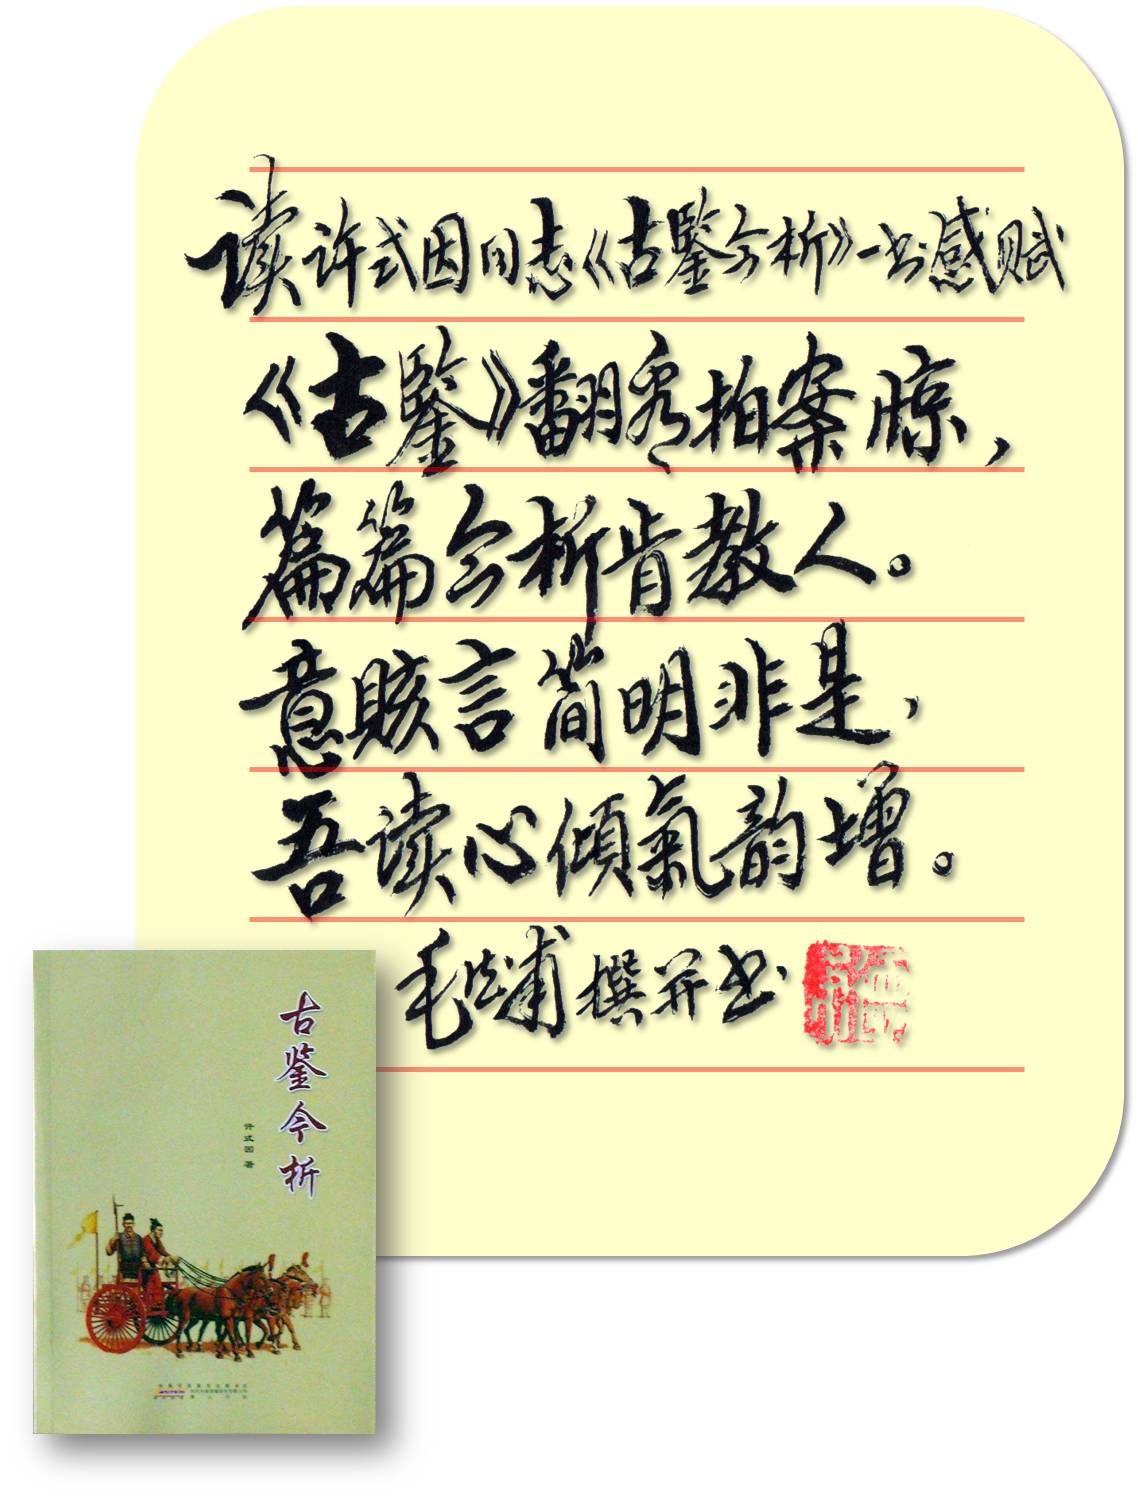 读许式因同志《古鉴今析》一书感赋
《古鋻》翻看拍案惊，
篇篇今析肯教人。
意赅言简明非是，
吾读心倾氣韵增。
毛 撰并书
古鉴今析
许式因 著